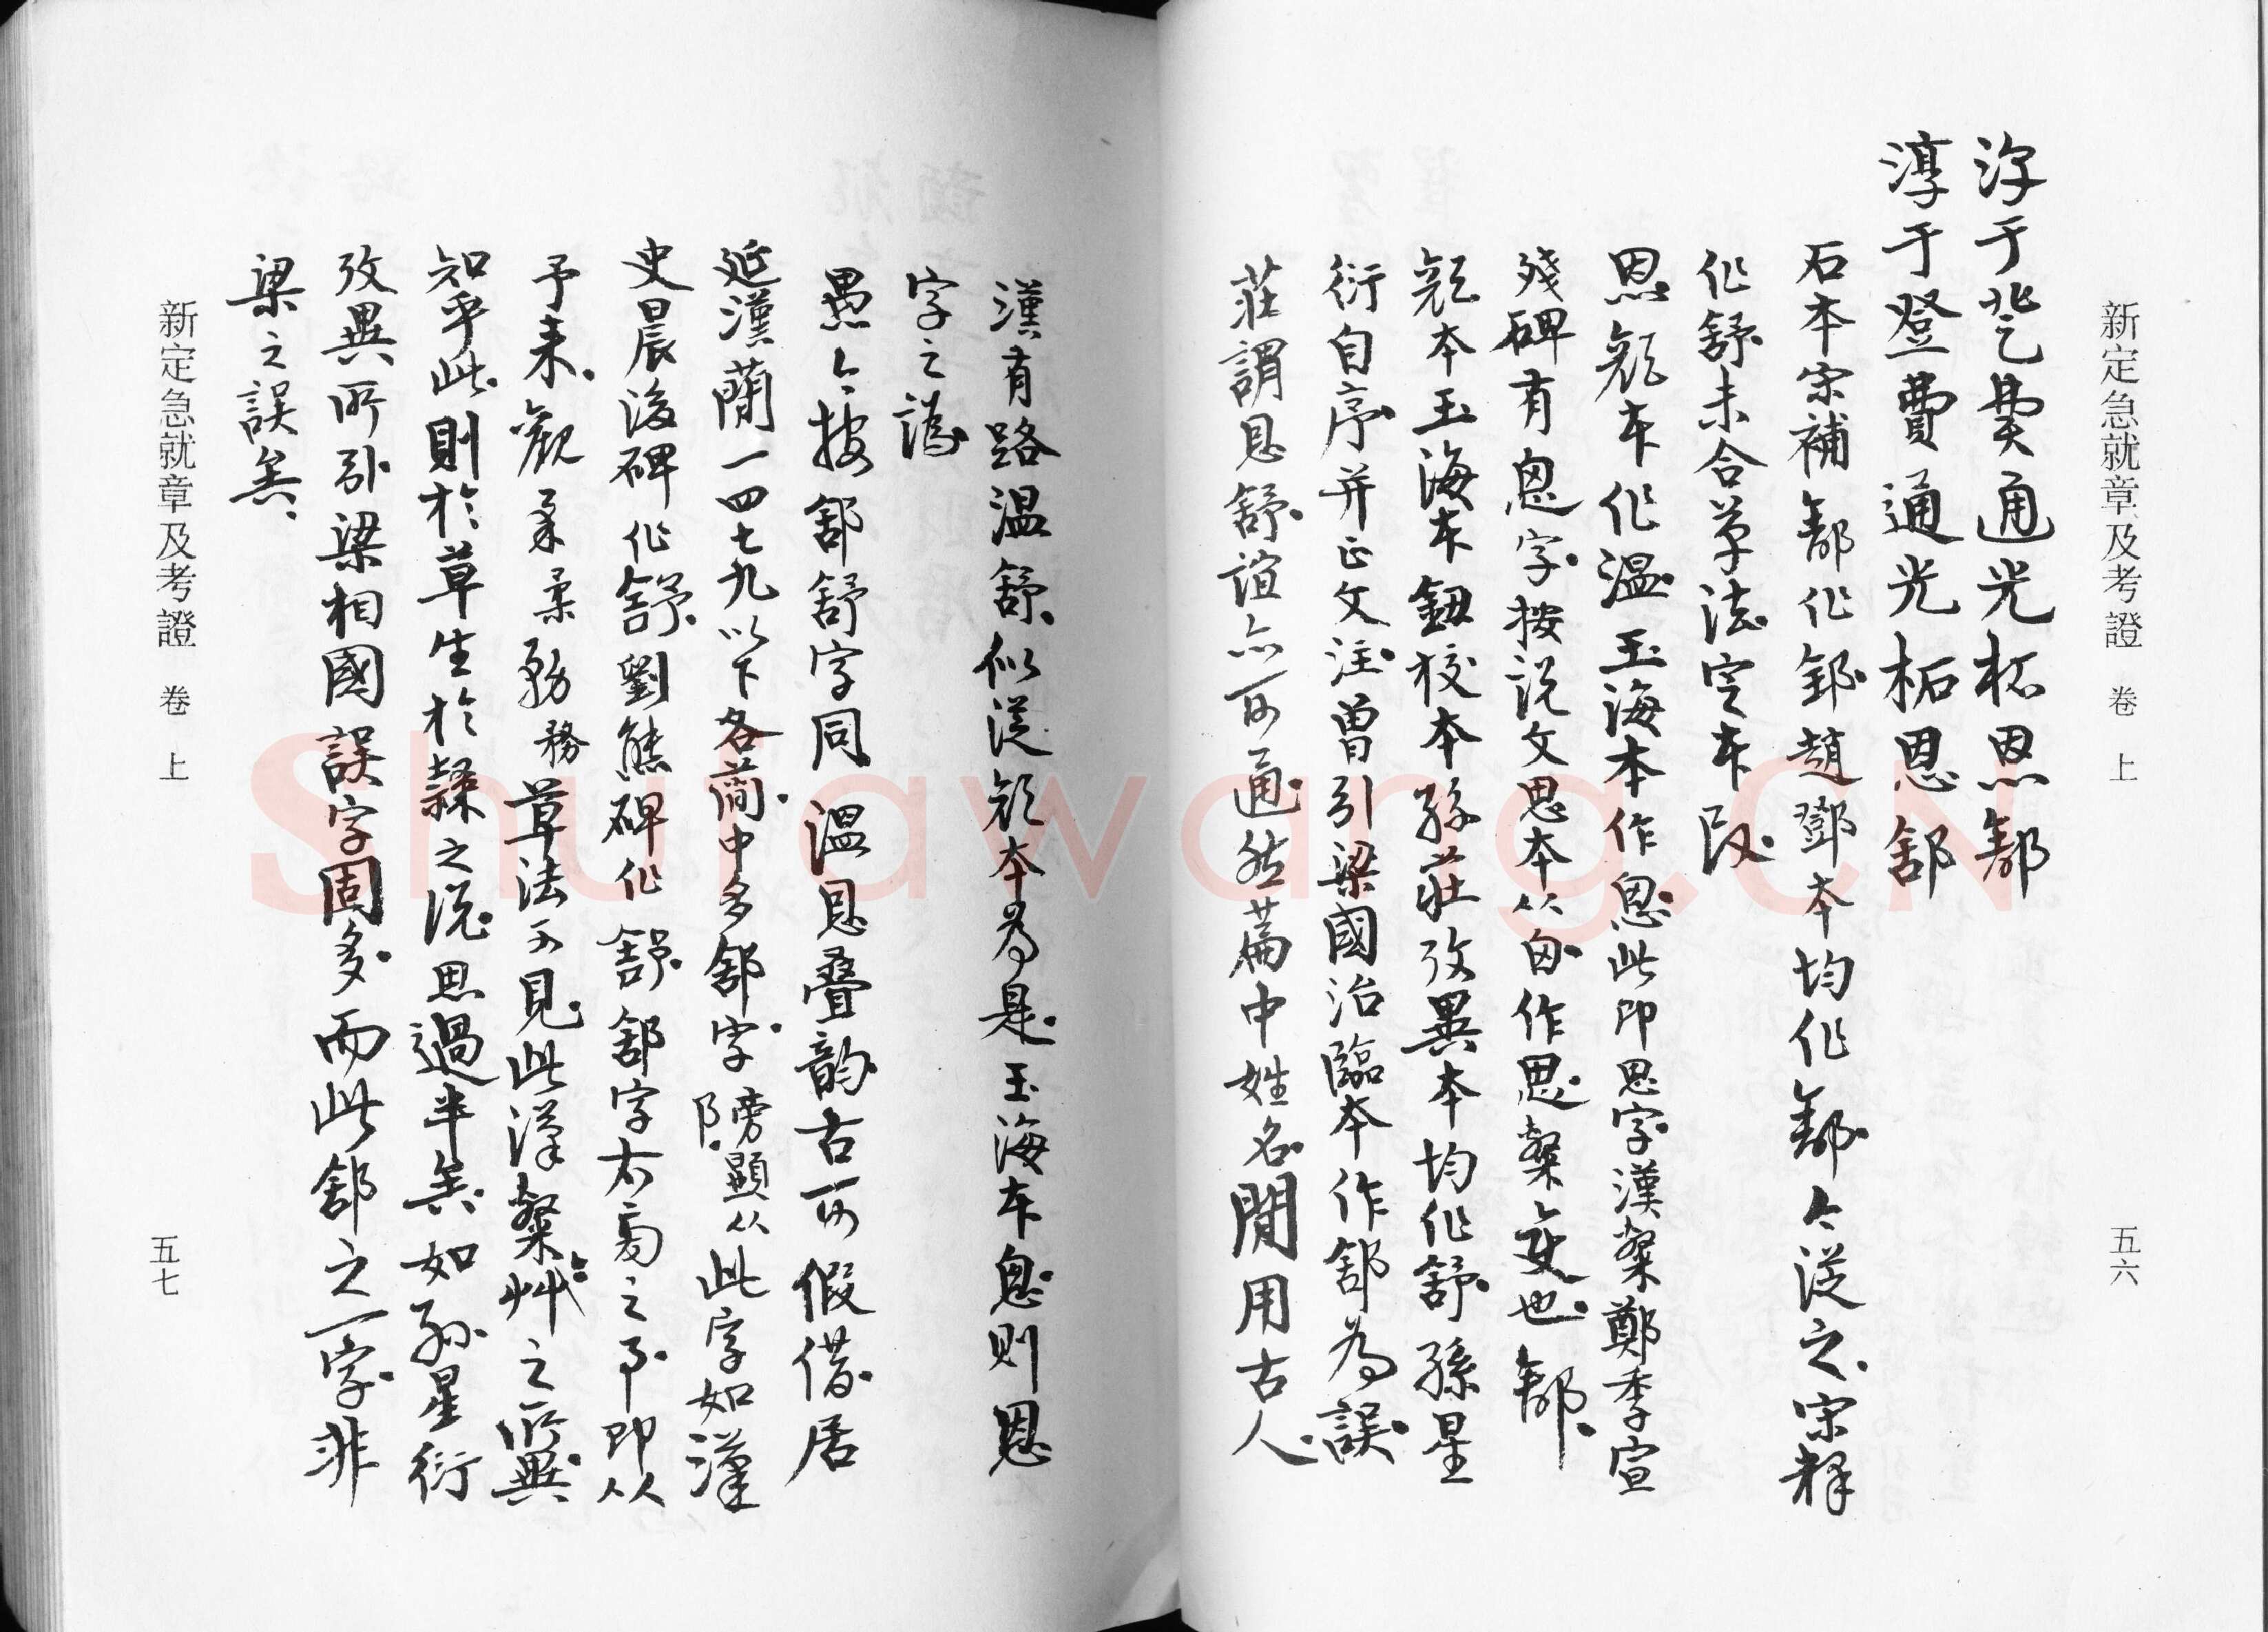 新定急就章及考證 卷上
五六
淳于登費通光柘恩舒
淳于登費通光柘恩舒
石本宋補郶作鄒趙鄧本均作郶今從之宋釋
作舒未合草法空本段
恩顏本作溫玉海本作恩此即思字漢夏鄭季宣
殘碑有恖字按說文思本从囟作恖變也郶
顏本玉海本鈕校本孫莊攷異本均作舒孫星
衍自序并正文注曾引梁國治臨本作郶為誤
莊謂恩舒誼亦可通然篇中姓名閒用古人
漢有路溫舒似從顏本為是玉海本恖則恩
字之譌
愚今按郶舒字同溫恩疊韵古可假借居
延漢蕳一四七九以下各蕳中多郶字旁顯从阝此字如漢
史晨後碑作舒劉熊碑作舒郶字右旁之阝即从
予耒觀柔柔務務草法可見此漢草之所異
知乎此則於草生於隸之說思過半矣如孫星衍
攷異所引梁相國誤字固多而此郶之一字非
梁之誤矣
新定急就章及考證 卷上
五七
Shufawang.CN